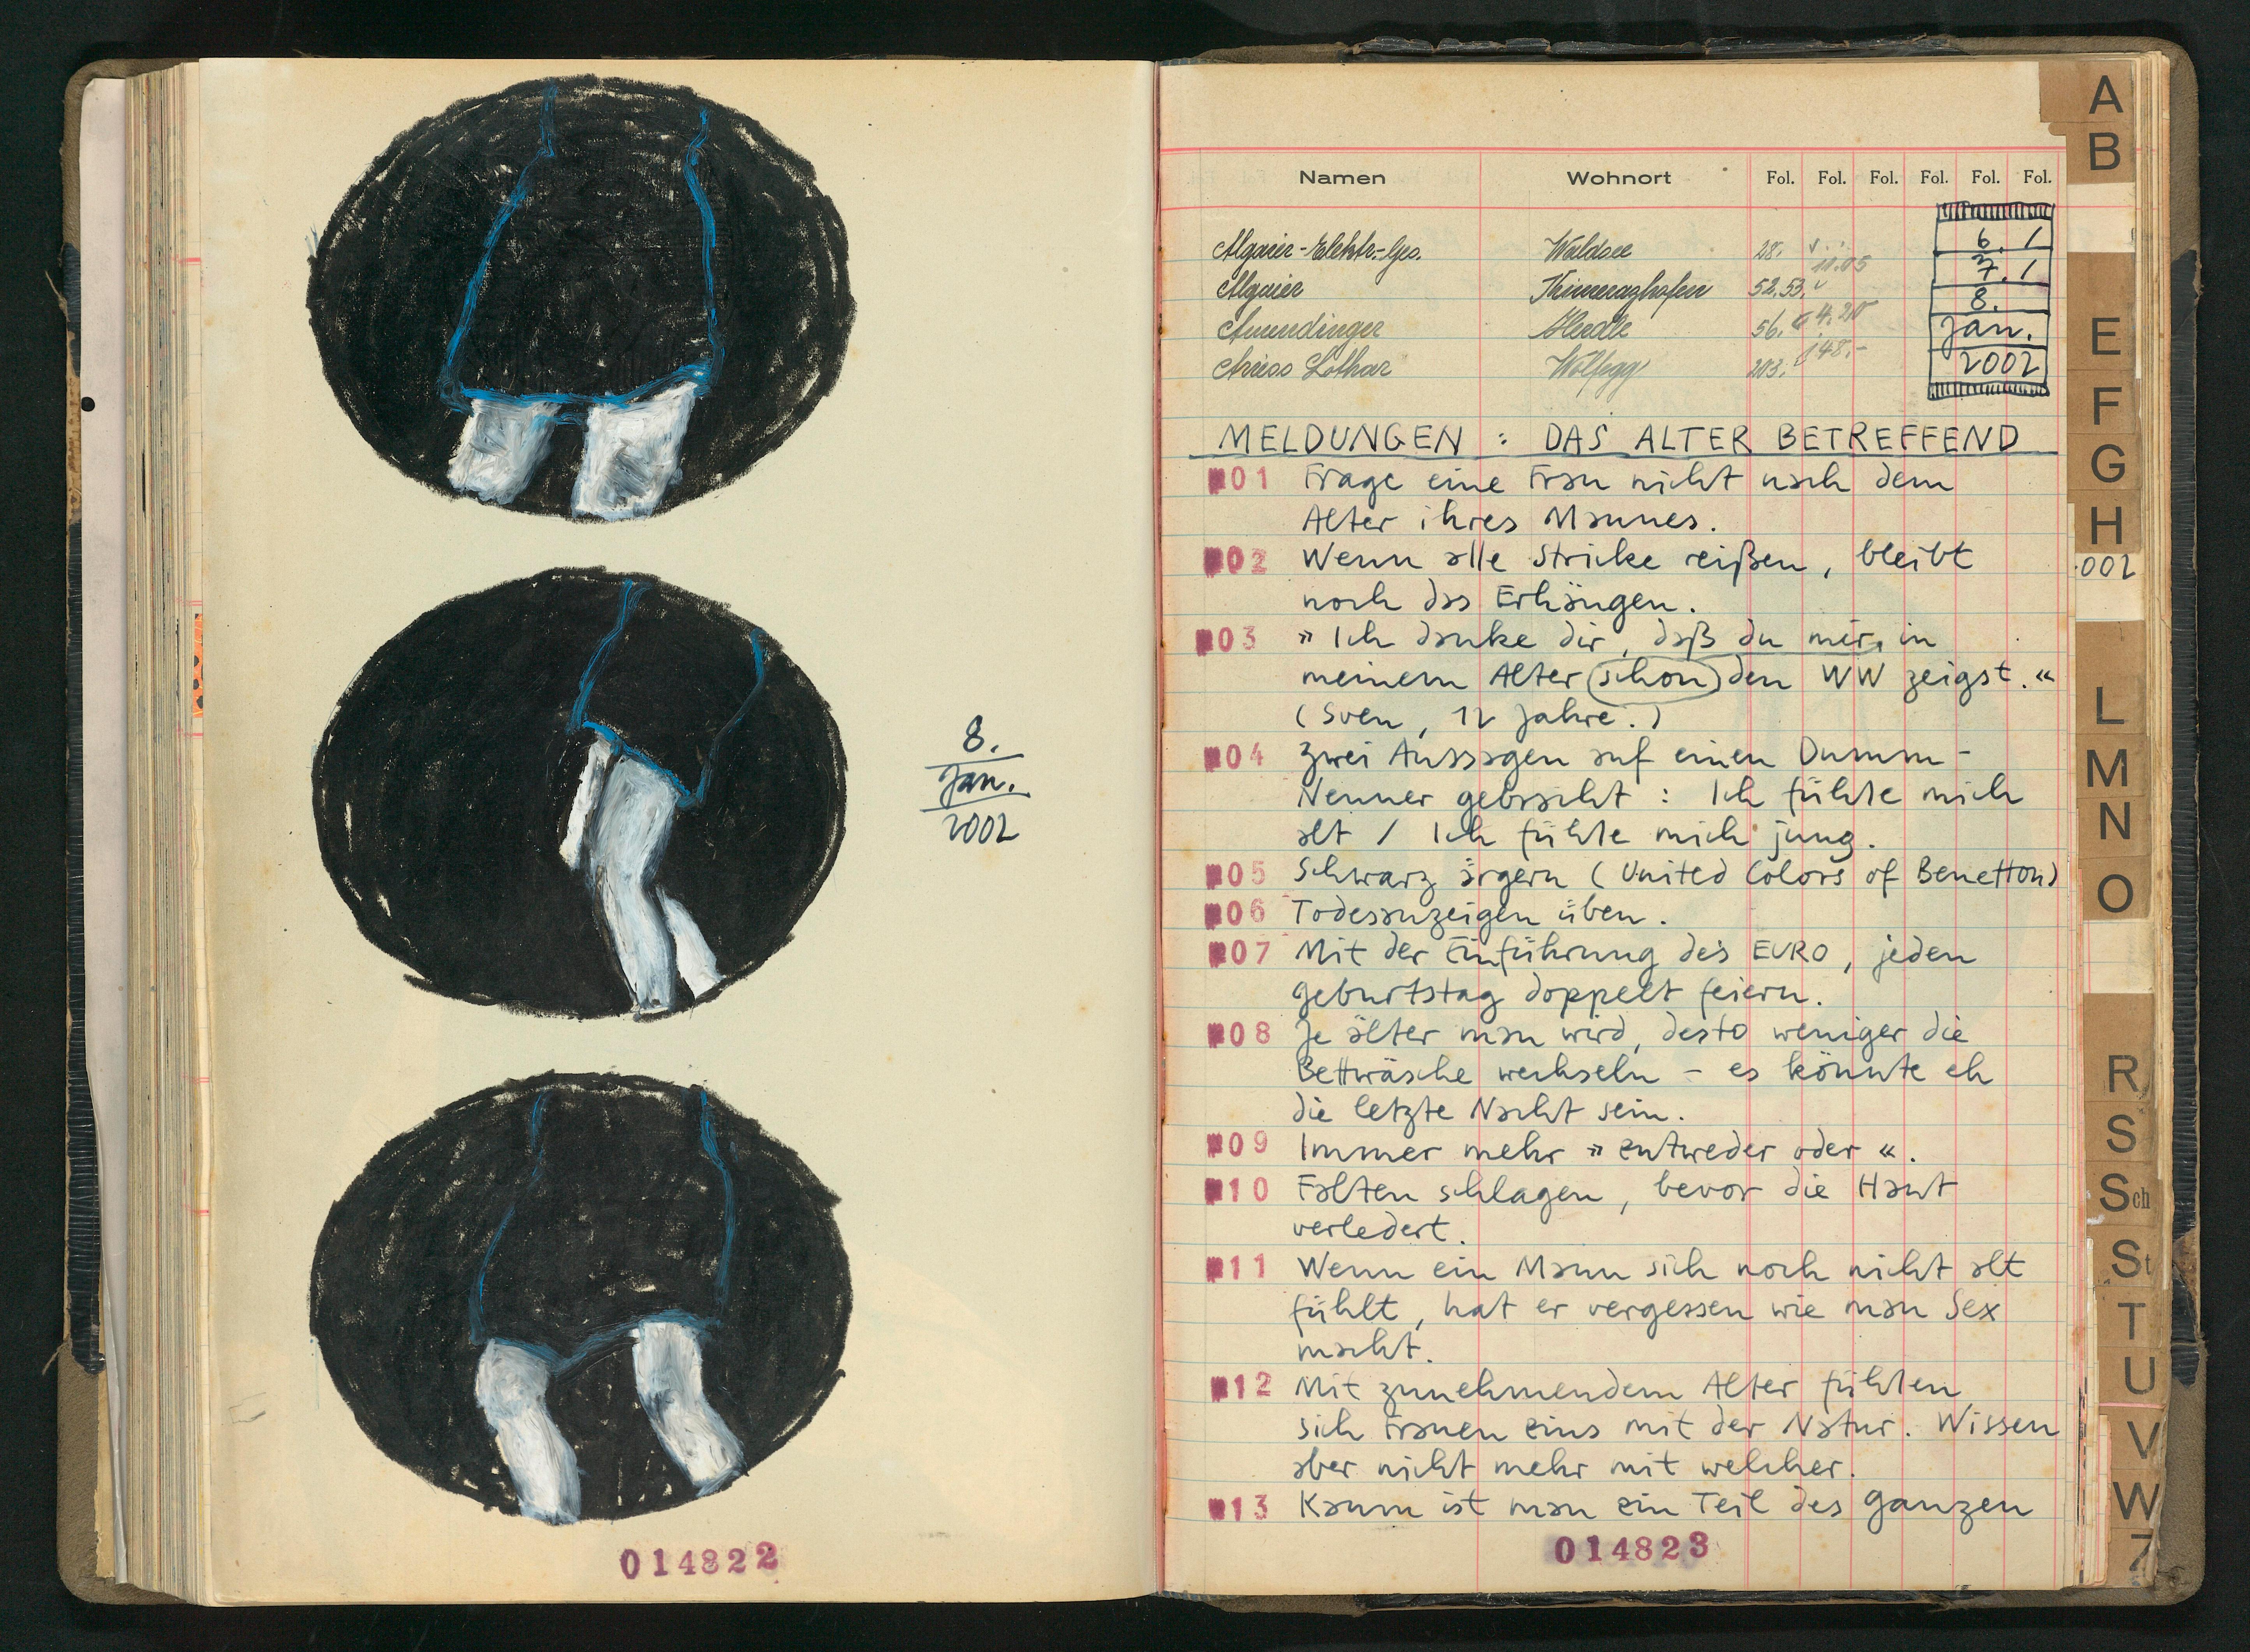 8.
Jan.
2002
014822
Namen Wohnort Fol. Fol. Fol. Fol. Fol. Fol.
Algaier-Elektr.-Ges. Waldsee 28.
11.05
Algaier 52.53.
Amendinger 56. 4.20
Lothar Wolfegg 203. 148.-
6. 1
7. 1
8.
Jan.
2002
MELDUNGEN : DAS ALTER BETREFFEND
01 Frage eine Frau nicht nach dem
Alter ihres Mannes.
02 Wenn alle Stricke reißen, bleibt
noch das Erhängen.
03 »Ich danke dir, daß du mir, in
meinem Alter schon den WW zeigst.«
(Sven, 12 Jahre.)
04 Zwei Aussagen auf einen Dumm-
Nenner gebracht : Ich fühle mich
alt / Ich fühle mich jung.
05 Schwarz ärgern (United Colors of Benetton)
06 Todesanzeigen üben.
07 Mit der Einführung des EURO, jeden
Geburtstag doppelt feiern.
08 Je älter man wird, desto weniger die
Bettwäsche wechseln – es könnte eh
die letzte Nacht sein.
09 Immer mehr »entweder oder«.
10 Falten schlagen, bevor die Haut
verledert.
11 Wenn ein Mann sich noch nicht alt
fühlt, hat er vergessen wie man Sex
macht.
12 Mit zunehmendem Alter fühlen
sich Frauen eins mit der Natur. Wissen
aber nicht mehr mit welcher.
13 Kaum ist man ein Teil des Ganzen
014823
A
B
E
F
G
H
002
L
M
N
O
R
S
Sch
St
T
U
V
W
Z